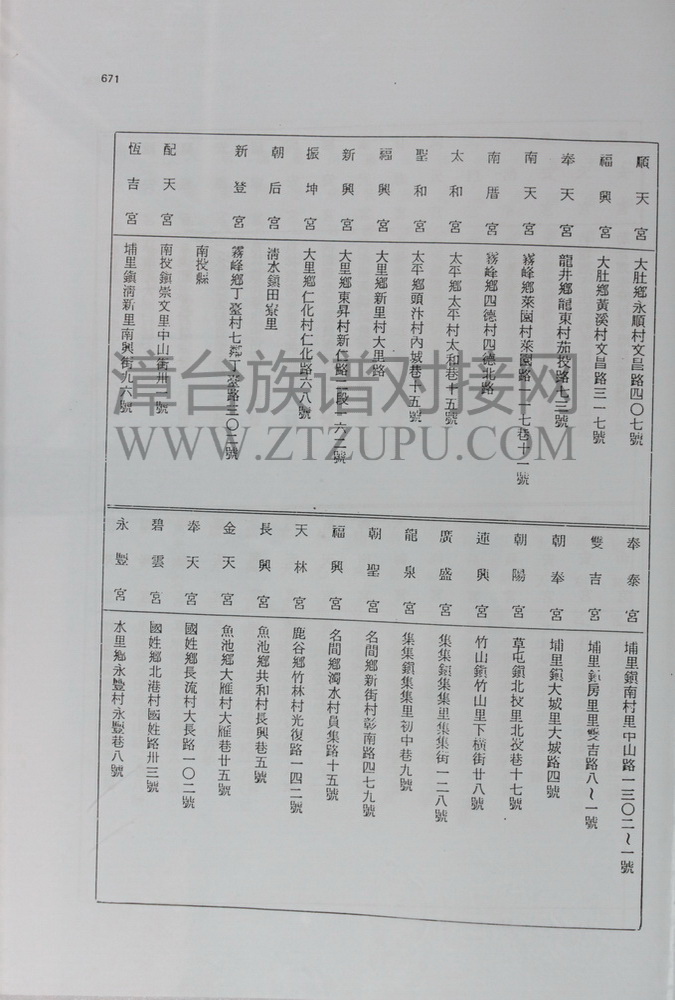 671
順天宮 大肚鄉永順村文昌路四〇七號
福興宮 大肚鄉黃溪村文昌路三一七號
奉天宮 龍井鄉龍東村茄投路七三號
南天宮 霧峰鄉萊園村萊園路一一七巷十一號
南厝宮 霧峰鄉四德村四德北路
太和宮 太平鄉太平村太和巷十五號
聖和宮 太平鄉頭汴村內城巷十五號
福興宮 大里鄉新里村大里路
新興宮 大里鄉東昇村新仁路二段一六二號
振坤宮 大里鄉仁化村仁化路六八號
朝后宮 清水鎮田寮里
新登宮 霧峰鄉丁臺村七鄰丁臺路三〇三號
南投縣
配天宮 南投鎮崇文里中山街卅二號
恆吉宮 埔里鎮清新里南興街九六號
奉泰宮 埔里鎮南村里中山路一三〇二~一號
雙吉宮 埔里鎮房里里雙吉路八~一號
朝奉宮 埔里鎮大城里大城路四號
朝陽宮 草屯鎮北投里北投巷十七號
連興宮 竹山鎮竹山里下橫街廿八號
廣盛宮 集集鎮集集里集集街一二八號
龍泉宮 集集鎮集集里初中巷九號
朝聖宮 名間鄉新街村彰南路四七九號
福興宮 名間鄉濁水村員集路十五號
天林宮 鹿谷鄉竹林村光復路一四二號
長興宮 魚池鄉共和村長興巷五號
金天宮 魚池鄉大雁村大雁巷廿五號
奉天宮 國姓鄉長流村大長路一〇二號
碧雲宮 國姓鄉北港村國姓路卅三號
永豐宮 水里鄉永豐村永豐巷八號
漳台族谱对接网
WWW.ZTZUPU.COM